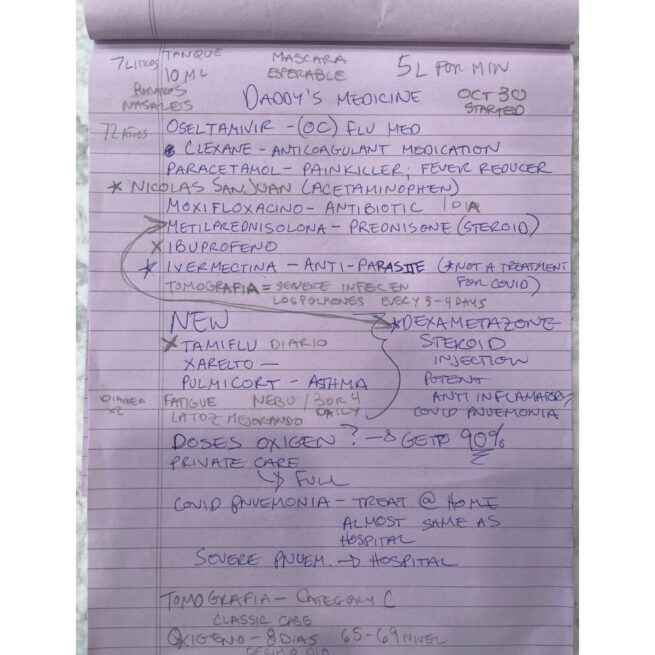 7 LITROS TANQUE MASCARA 5L POR MIN
10 ML ESPERABLE
NASALES DADDY'S MEDICINE OCT 30 STARTED
72 AÑOS OSELTAMIVIR - (OC) FLU MED
CLEXANE - ANTICOAGULANT MEDICATION
PARACETAMOL - PAINKILLER; FEVER REDUCER
* NICOLAS SANJUAN (ACETAMINOPHEN)
MOXIFLOXACINO - ANTIBIOTIC 1 DIA
METILPREDNISOLONA - PREDNISONE (STEROID)
X IBUPROFENO
* IVERMECTINA - ANTI-PARASITE (*NOT A TREATMENT
TOMOGRAFIA = SEVERE INFEC EN FOR COVID)
LOS POLMONES EVERY 3-4 DAYS
NEW *DEXAMETAZONE
X TAMIFLU DIARIO STEROID
XARELTO - INJECTION
PULMICORT - ASTHMA POTENT
FATIGUE NEBU / 3 OR 4 ANTI INFLAMATORY
LA TOZ MEJORANDO DAILY COVID PNUEMONIA
DOSES OXIGEN? → GET TO 90%
PRIVATE CARE
↳ FULL
COVID PNUEMONIA - TREAT @ HOME
ALMOST SAME AS
HOSPITAL
SEVERE PNUEM. → HOSPITAL
TOMOGRAFIA - CATEGORY C
CLASSIC CASE
OXIGENO - 8 DIAS 65-69 NIVEL
DECIMO DIA